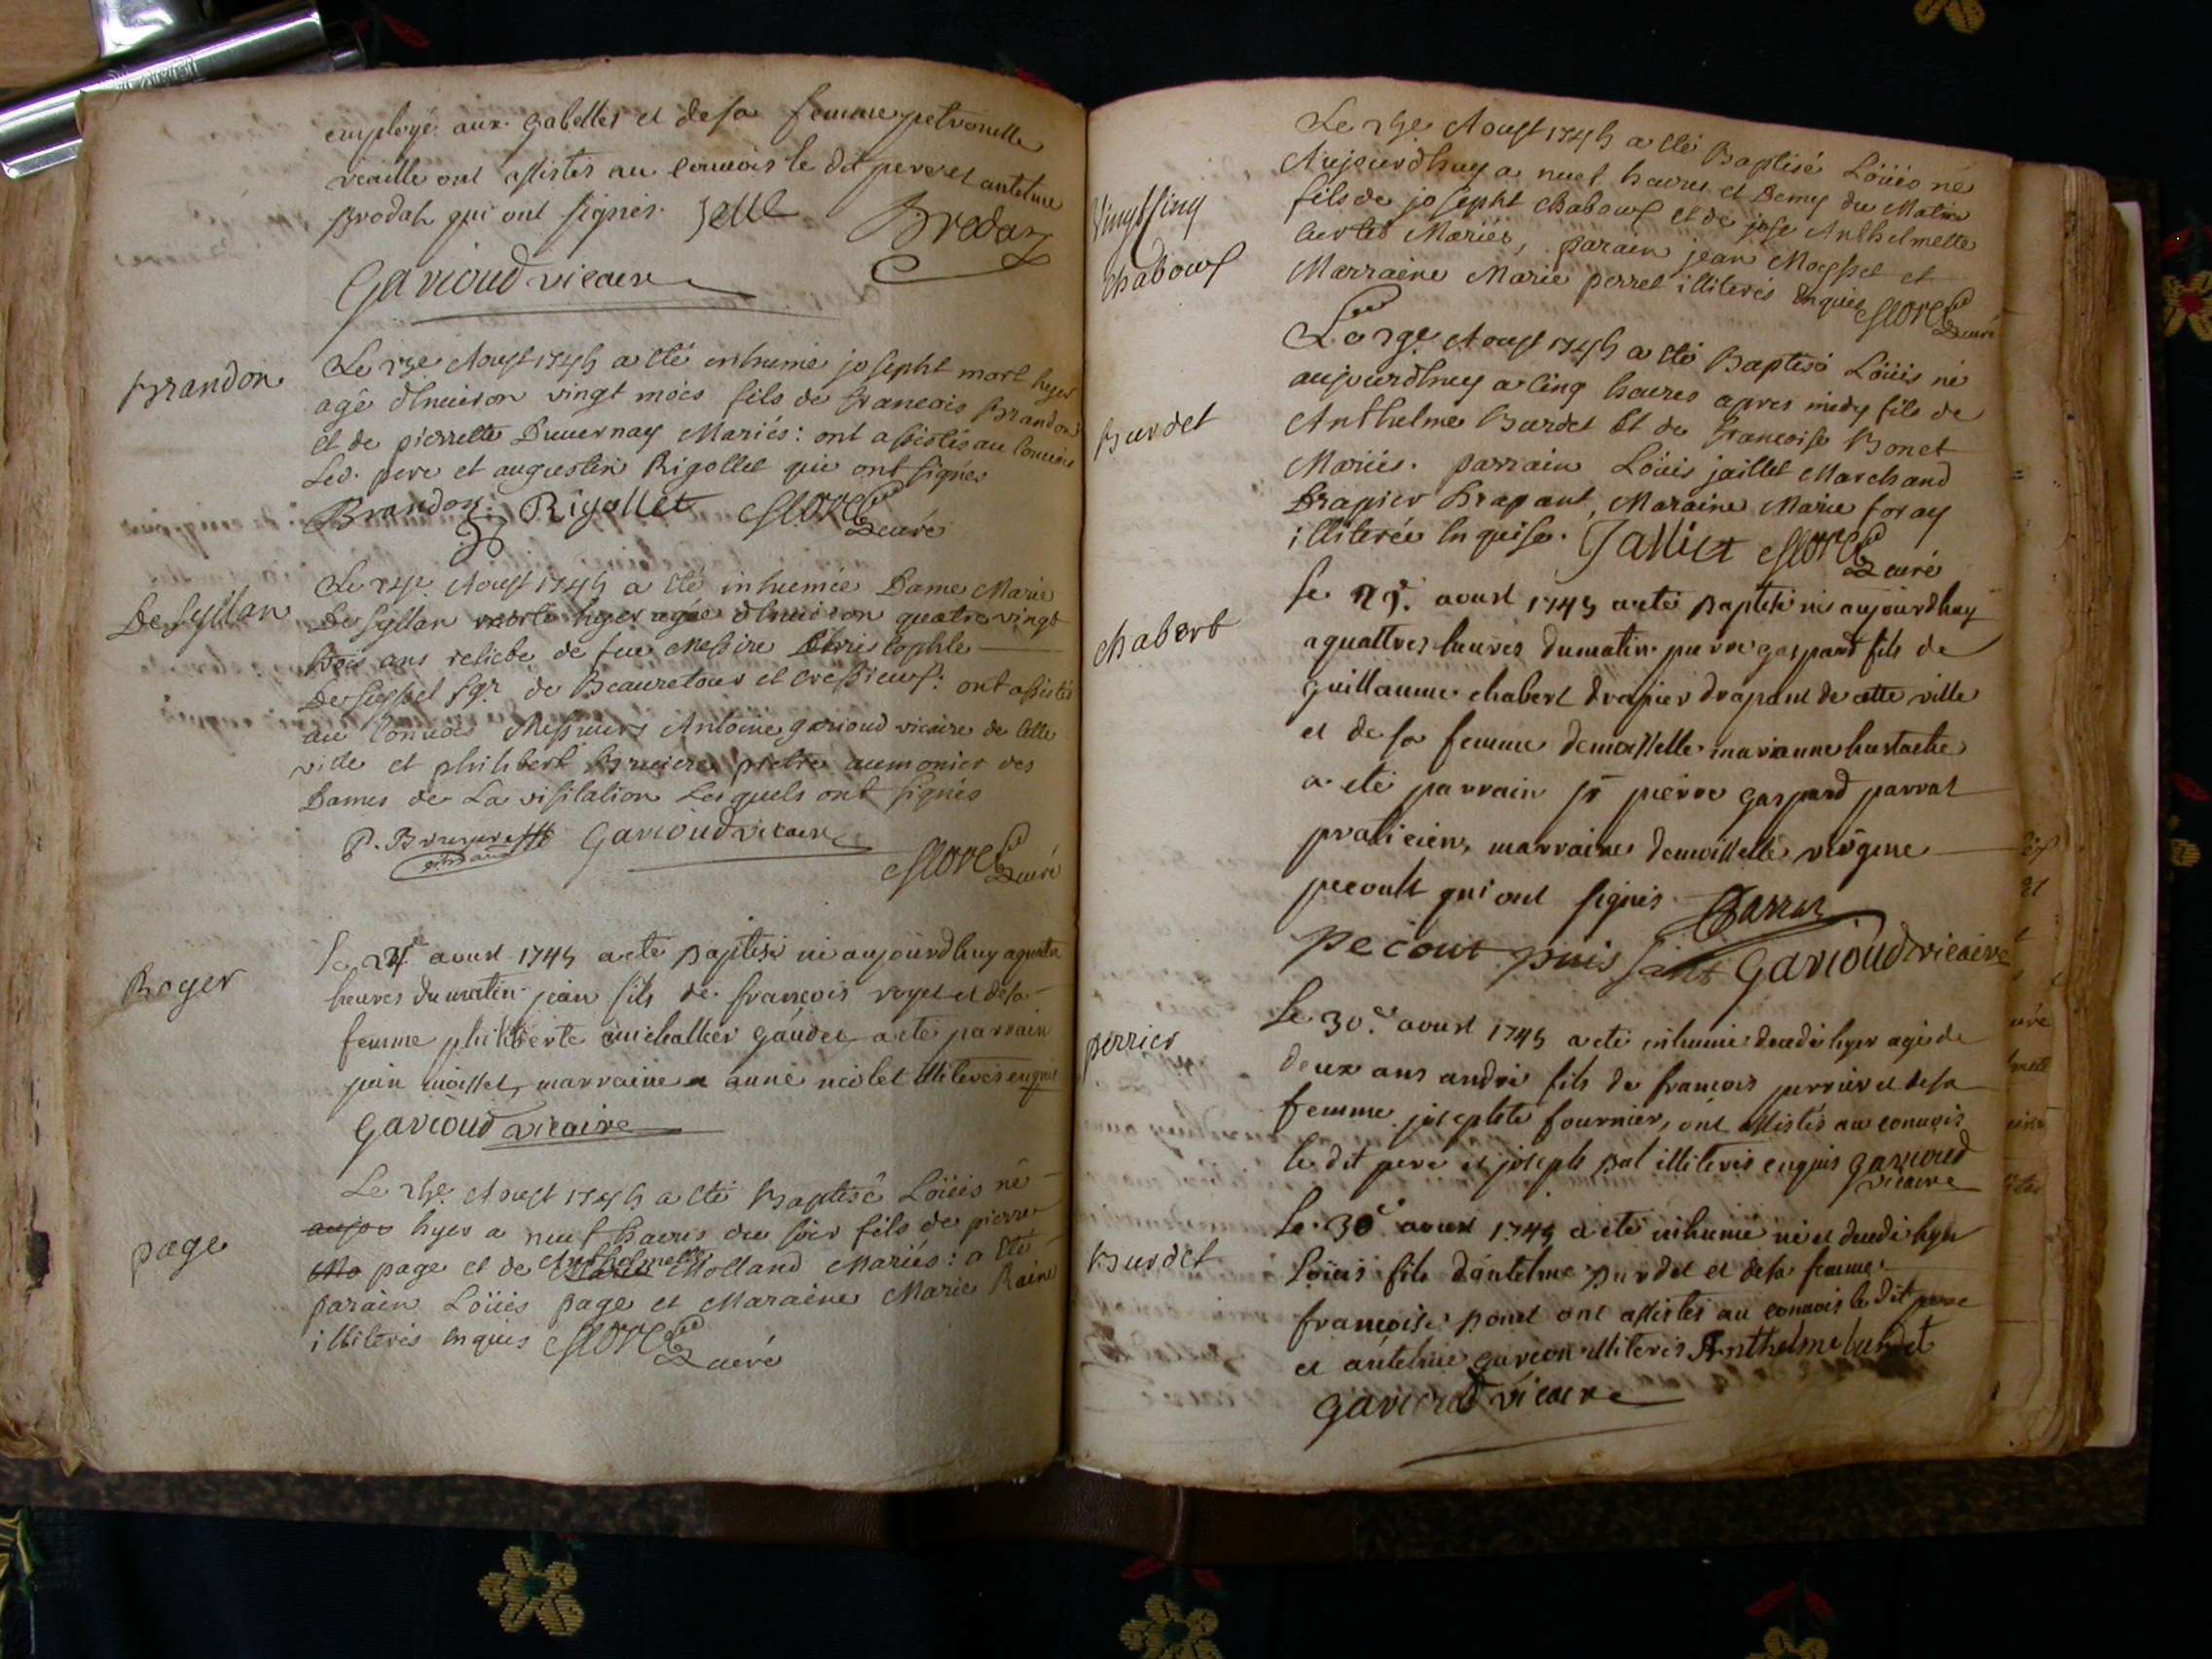 employé aux gabelles et de sa femme petronille
ont assistés au convois le dit pere et antelme
Brodat qui ont signés. Brodaz
Garioud vicaire
Brandon
Le Aoust 1745 a été inhumé josepht mort hyer
agé d'environ vingt mois fils de francois Brandon
et de pierrette Duvernay Mariés: ont assistés au Convois
Led. pere et augustin Rigollet qui ont signés
Brandon Rigollet curé
De Seyllan
Le Aoust 1745 a été inhumée Dame Marie
De Syllan morte hyer agée d'environ quatre vingt
trois ans relicte de feu Messire Christophle
De Seyssel sgr. de Beauretour et Cressieux: ont assistés
au Convois Messieurs Antoine garioud vicaire de cette
ville et philibert pretre aumonier des
Dames de La visitation Lesquels ont signés
P. Garioud vicaire
curé
Roger
Le aoust 1745 a ete Baptisé né aujourdhuy a quatre
heures du matin jean fils de françois roget et de sa
femme philiberte gaudet a ete parrain
marraine anne nicolet illiterés enquis
Garioud vicaire
page
Le Aoust 1745 a été Baptisé Loüis né
hyer a neuf heures du soir fils de pierre
page et de Anthelmette Molland Mariés: a été
parain Loüis page et Maraine Marie
illiterés Enquis curé
Vingt sinq
Chaboux
Le Aoust 1745 a été Baptisé Loüis né
Aujourdhuy a neuf heures et Demy du Matin
fils de josepht Chaboux et de Anthelmette
Mariés, parain jean et
Marraine Marie perret illiterés Enquis
curé
Burdet
Le Aoust 1745 a été Baptisé Loüis né
aujourdhuy a Cinq heures apres midy fils de
Anthelme Burdet Et de francoise Bonet
Mariés. parrain Loüis jaillet Marchand
Drapier Drapant, Maraine Marie foray
illiterée Enquise. Jalliet curé
Chabert
Le 29e. aoust 1745 a eté Baptisé né aujourdhuy
a quattres heures du matin pierre gaspard fils de
guillaume chabert drapier drapant de cette ville
et de sa femme demoiselle marianne hustache
a eté parrain sr pierre gaspard parrat
praticien, marraine demoiselle
pecoult qui ont signés Parrat
pecout Garioud vicaire
perrier
Le 30e. aoust 1745 a eté inhumé decedé hyer agé de
deux ans andré fils de francois perrier et de sa
femme josephte fournier, ont assistés au convois
le dit pere et joseph illiterés enquis garioud
vicaire
Burdet
Le 30e aoust 1745 a eté inhumé né et decedé hyer
Loüis fils d'antelme Burdet et de sa femme
françoise ponet ont assistés au convois le dit pere
et antelme illiterés Anthelme burdet
garioud vicaire